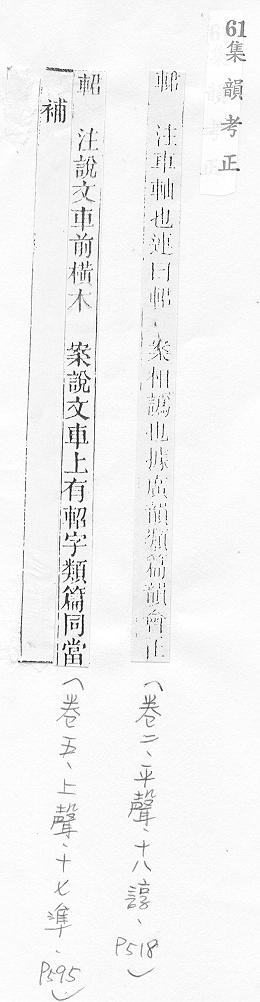 61
集韻考正
䡝 注車軸也連曰䡝 案相譌也據廣韻類篇韻會正
(卷二、平聲、十八諄、P518)
䡝 注說文車前橫木 案說文車上有䡝字類篇同當
補
(卷五、上聲、十七準、P595)